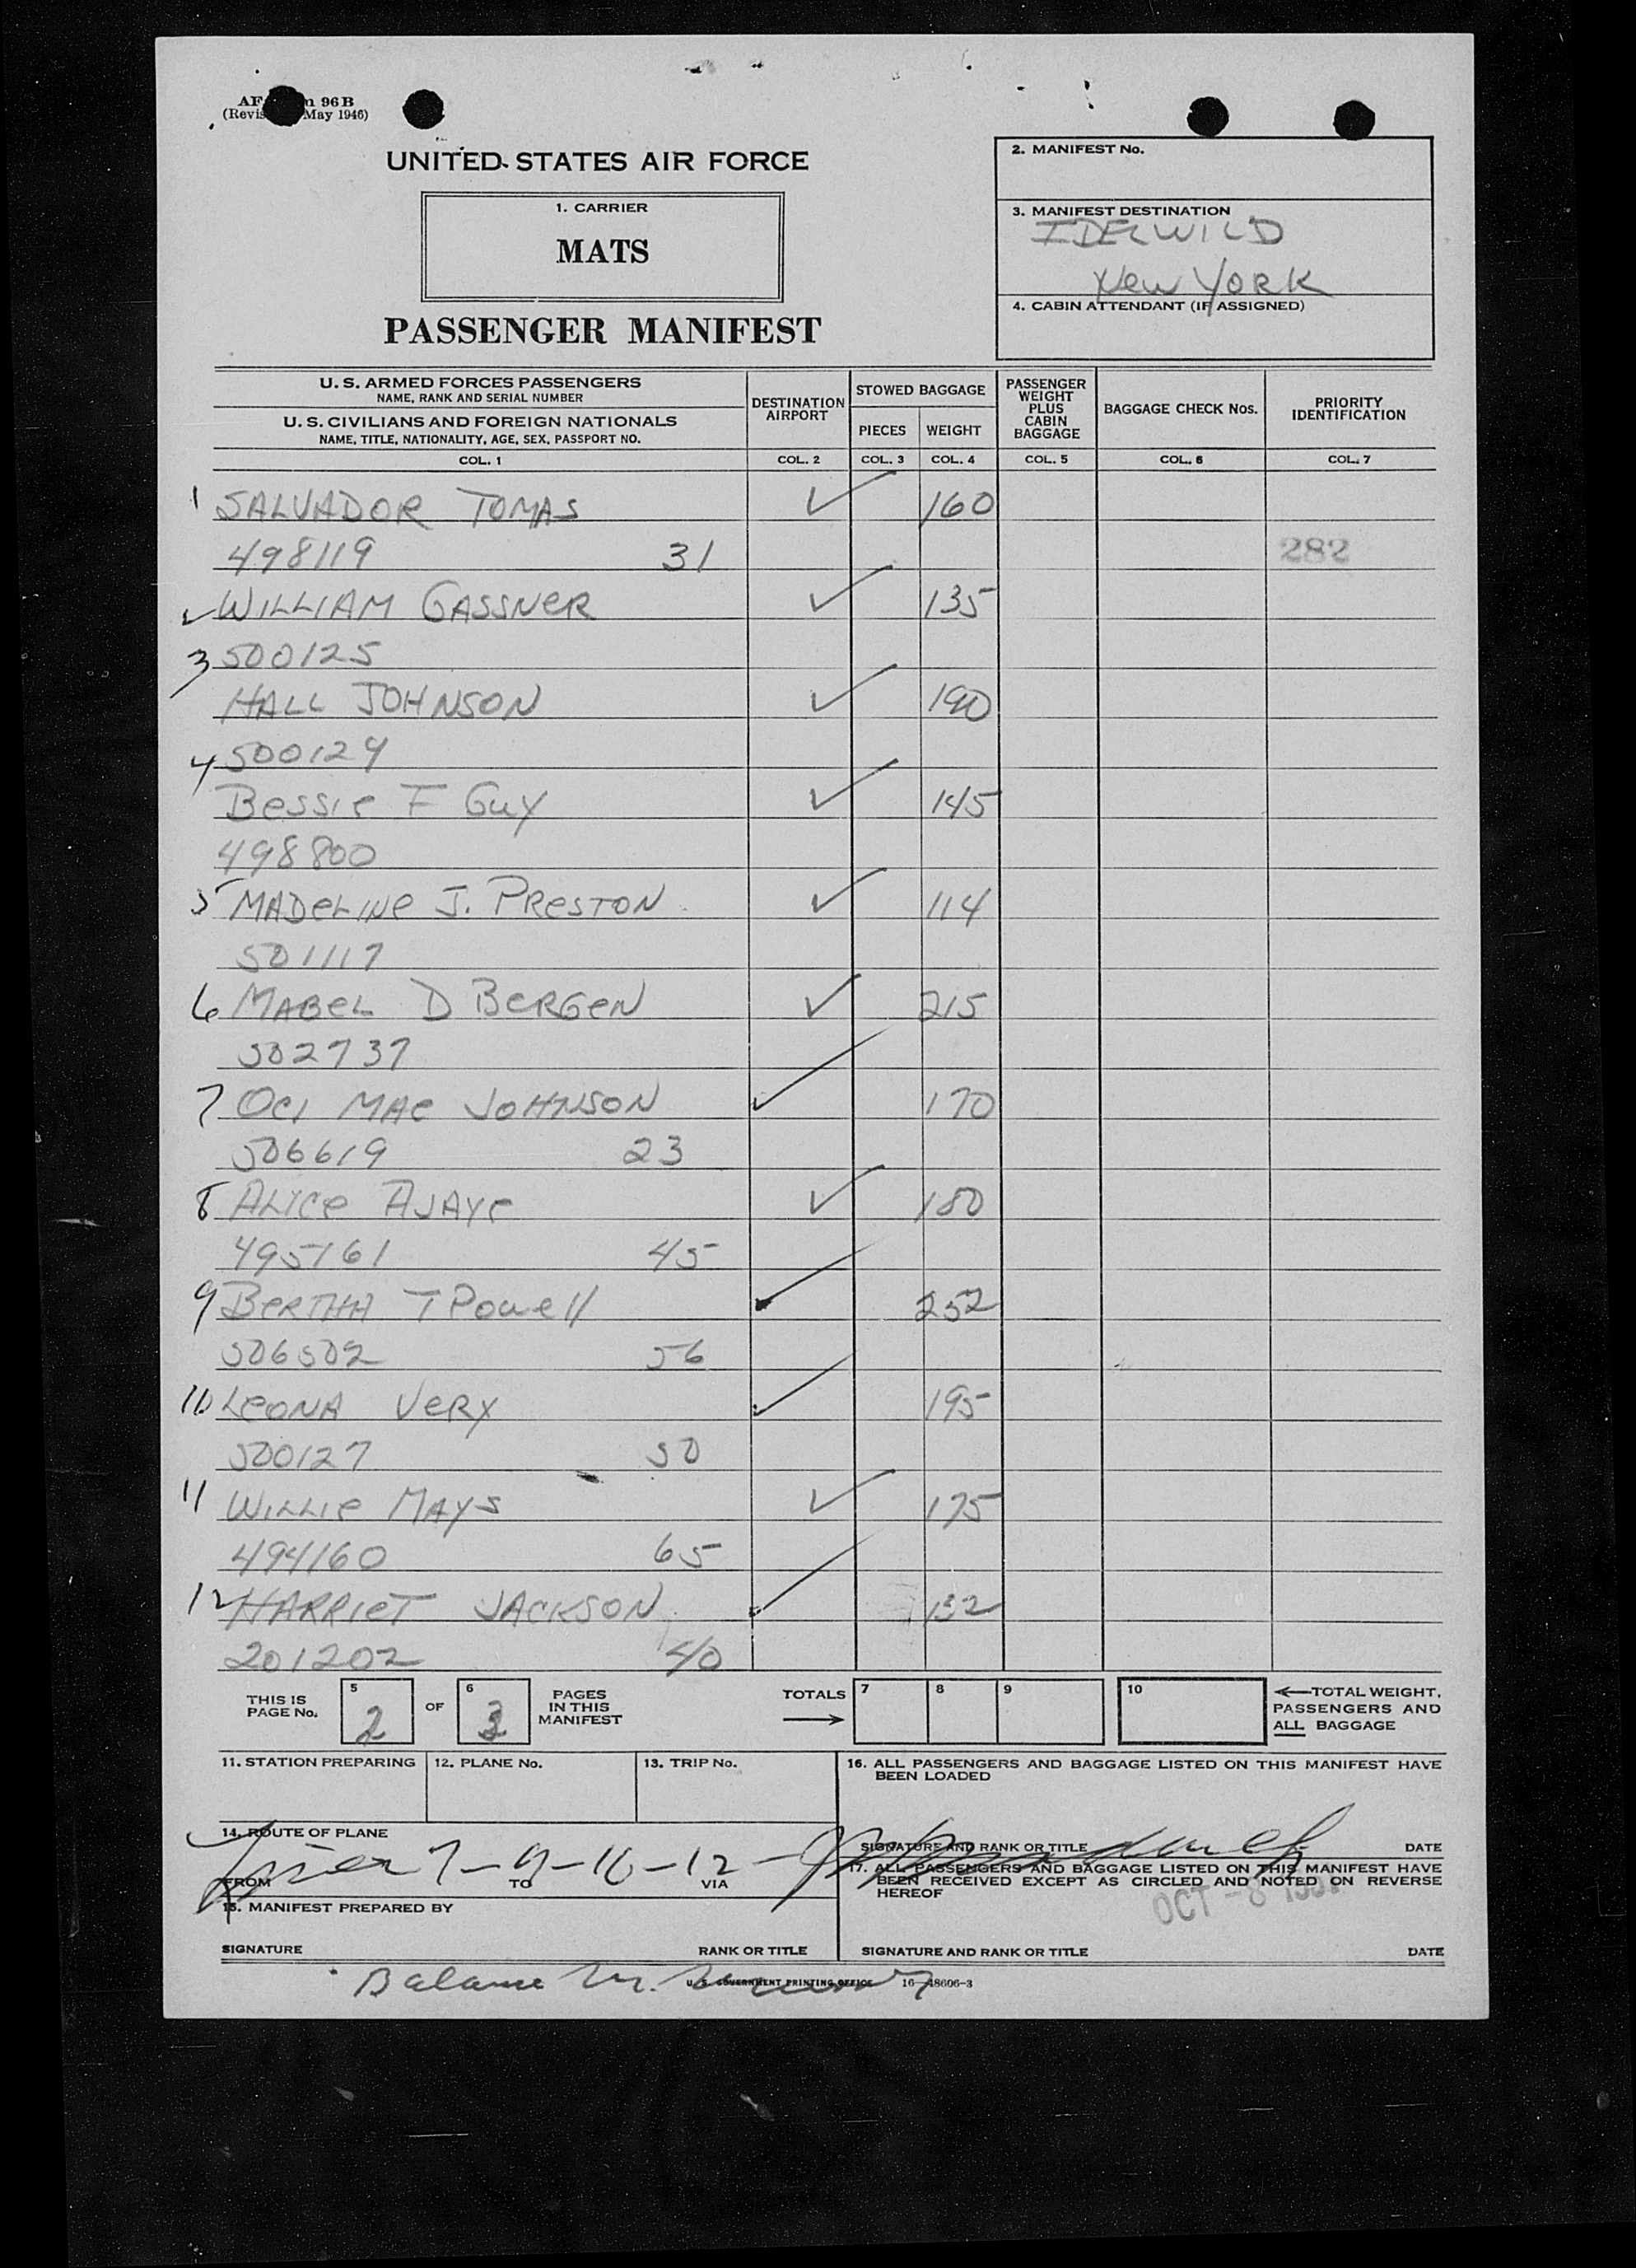 AF Form 96 B
(Revised May 1946)
UNITED STATES AIR FORCE
1. CARRIER
MATS
PASSENGER MANIFEST
2. MANIFEST No.
3. MANIFEST DESTINATION
IDELWILD
New YORK
4. CABIN ATTENDANT (IF ASSIGNED)
U. S. ARMED FORCES PASSENGERS
NAME, RANK AND SERIAL NUMBER
U. S. CIVILIANS AND FOREIGN NATIONALS
NAME, TITLE, NATIONALITY, AGE, SEX, PASSPORT NO.
DESTINATION AIRPORT
STOWED BAGGAGE
PIECES WEIGHT
PASSENGER WEIGHT PLUS CABIN BAGGAGE
BAGGAGE CHECK Nos.
PRIORITY IDENTIFICATION
COL. 1 COL. 2 COL. 3 COL. 4 COL. 5 COL. 6 COL. 7
1 SALVADOR TOMAS ✓ 160
498119 31 282
2 WILLIAM GASSNER ✓ 135
3 500125
HALL JOHNSON ✓ 190
4 500124
Bessie F Guy ✓ 145
498800
5 MADELINE J. PRESTON ✓ 114
501117
6 MABEL D BERGEN ✓ 215
502737
7 OCI MAE JOHNSON ✓ 170
506619 23
8 ALICE AJAYE ✓ 180
495161 45
9 BERTHA T Powell ✓ 252
506502 56
10 LEONA VERY ✓ 195
500127 50
11 WILLIE MAYS ✓ 175
494160 65
12 HARRIET JACKSON ✓ 132
201202 40
THIS IS PAGE No. 5 2 OF 6 3 PAGES IN THIS MANIFEST
TOTALS 7 8 9 10
TOTAL WEIGHT, PASSENGERS AND ALL BAGGAGE
11. STATION PREPARING
12. PLANE No.
13. TRIP No.
14. ROUTE OF PLANE
7-9-10-12-
FROM TO VIA
15. MANIFEST PREPARED BY
SIGNATURE RANK OR TITLE
16. ALL PASSENGERS AND BAGGAGE LISTED ON THIS MANIFEST HAVE
BEEN LOADED
SIGNATURE AND RANK OR TITLE DATE
17. ALL PASSENGERS AND BAGGAGE LISTED ON THIS MANIFEST HAVE
BEEN RECEIVED EXCEPT AS CIRCLED AND NOTED ON REVERSE
HEREOF
OCT -8
SIGNATURE AND RANK OR TITLE DATE
Balance
U. S. GOVERNMENT PRINTING OFFICE 16-48606-3